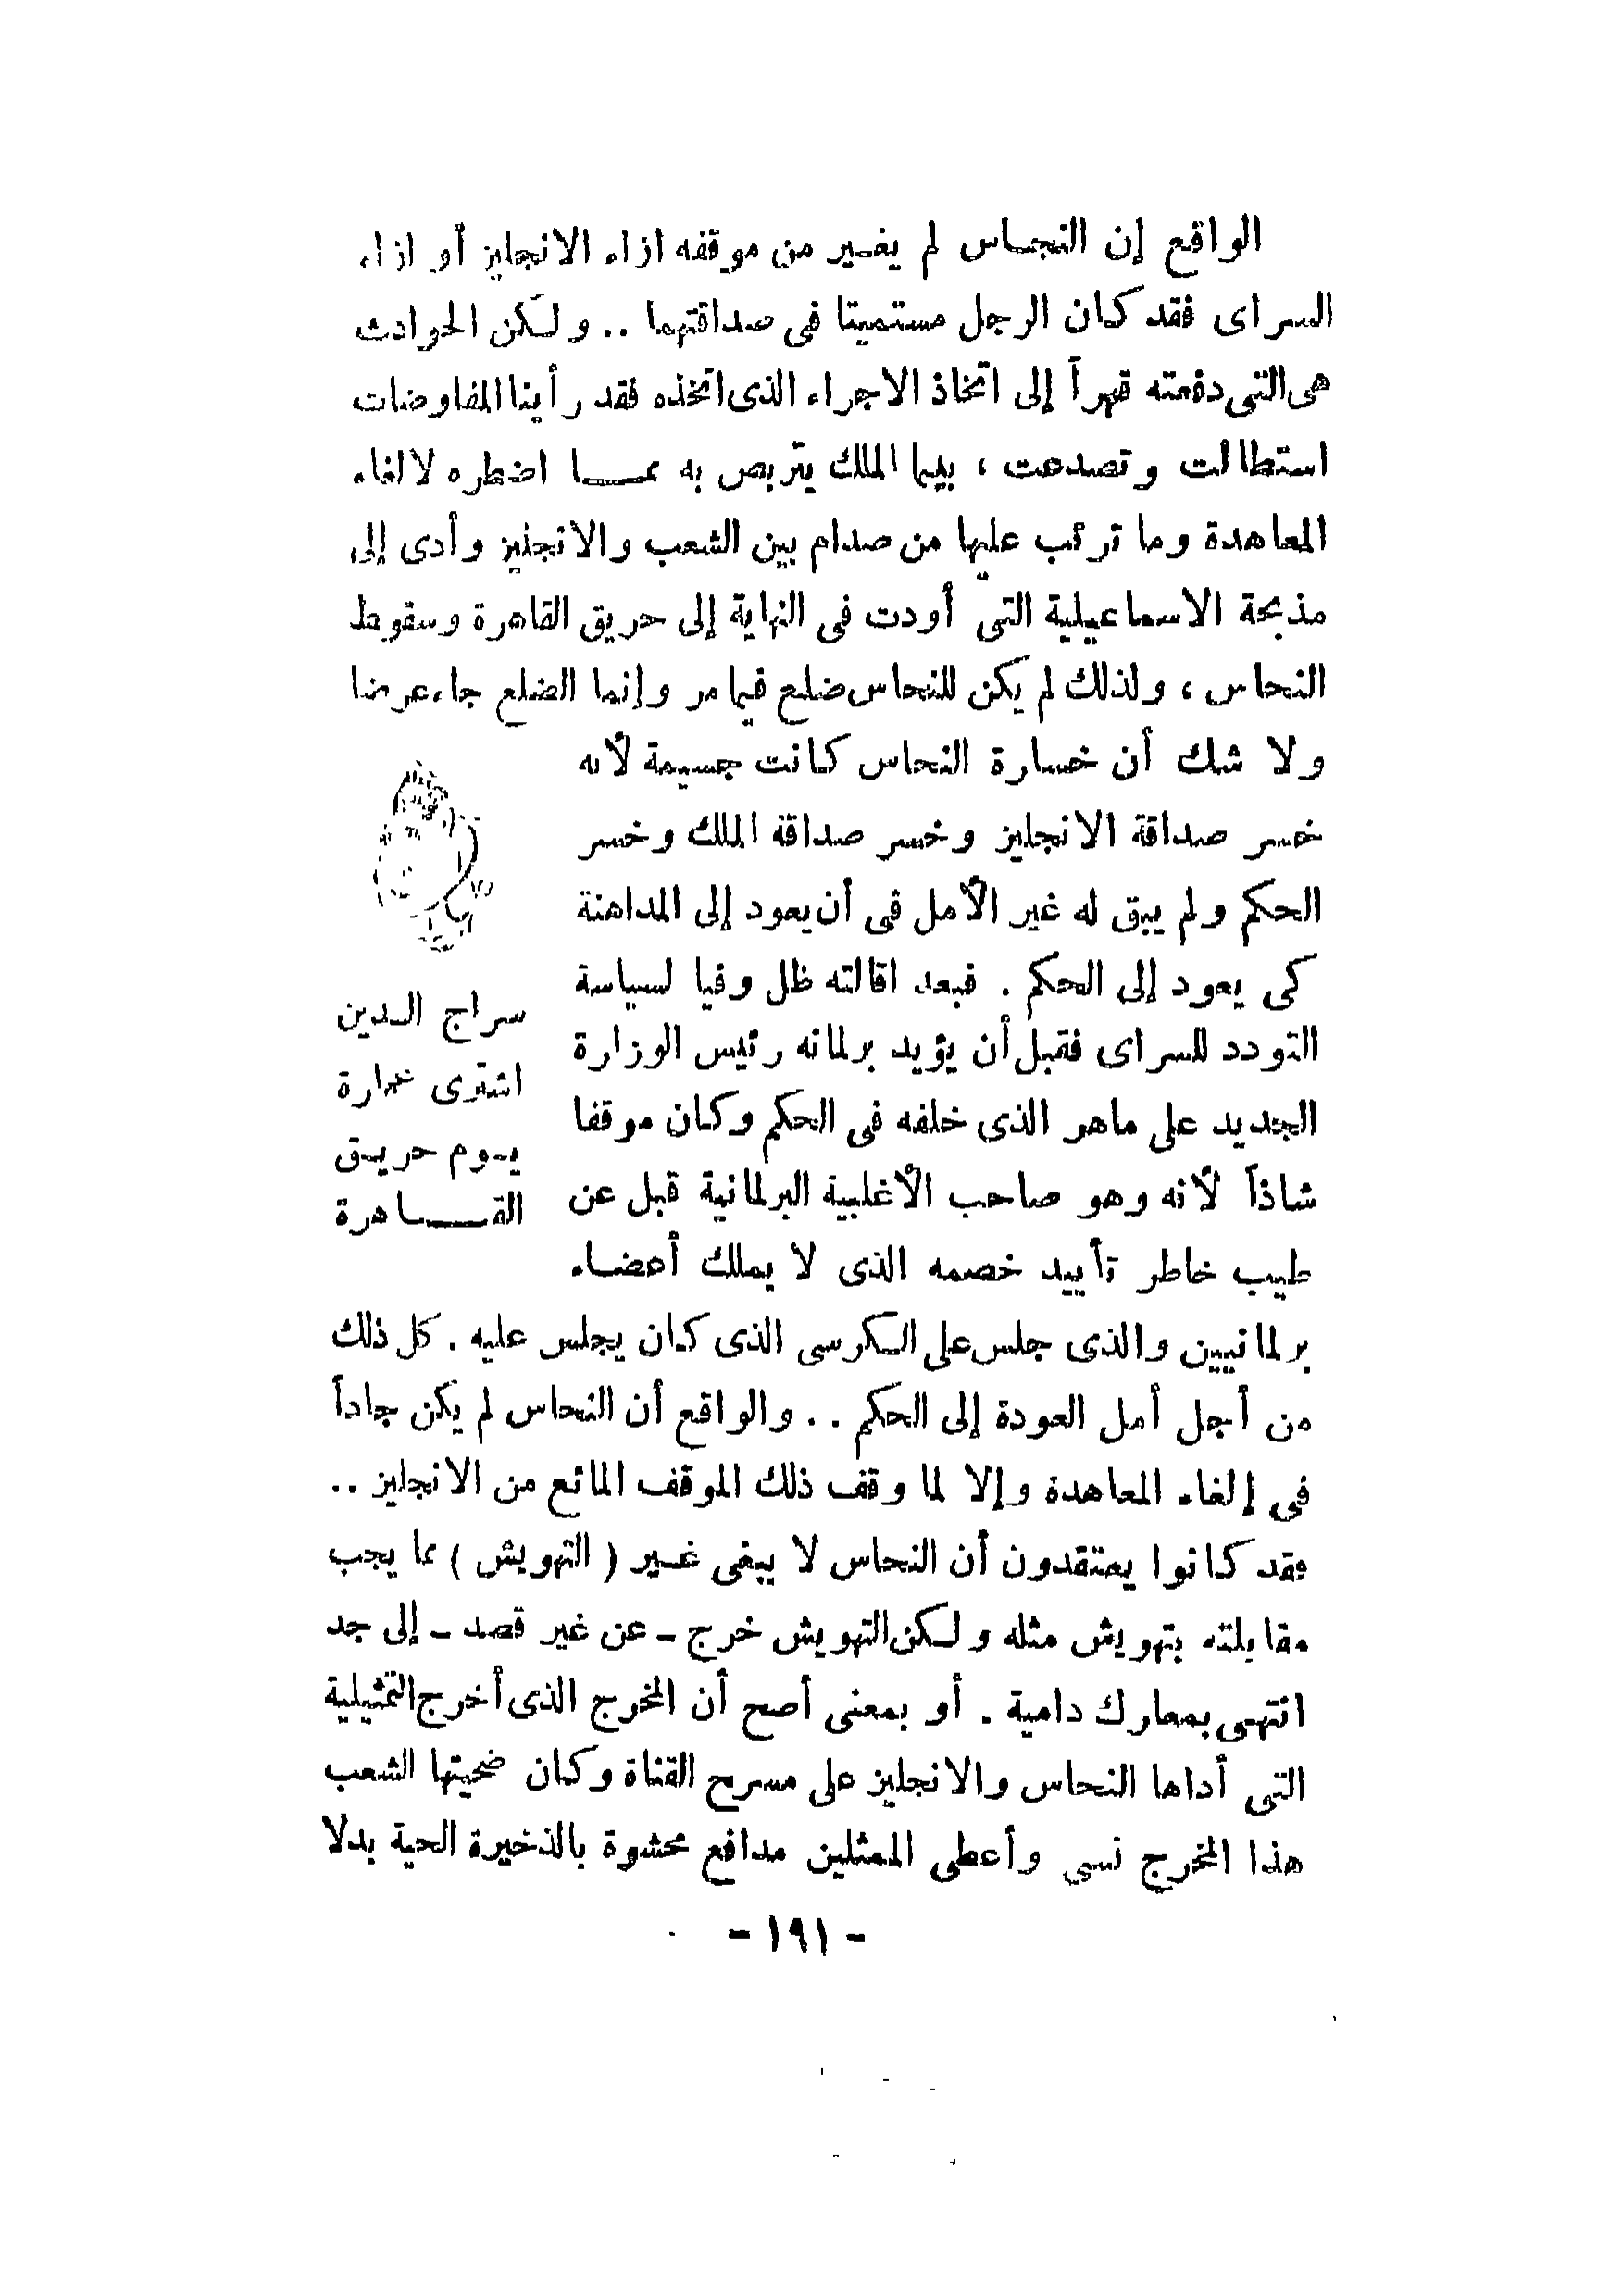 الواقع إن النحاس لم يغير من موقفه ازاء الانجليز أو ازاء
السراى فقد كان الرجل مستميتا فى صداقتهما .. ولكن الحوادث
هى التى دفعته قهراً إلى اتخاذ الاجراء الذى اتخذه فقد رأينا المفاوضات
استطالت وتصدعت ، بينما الملك يتربص به مما اضطره لالغاء
المعاهدة وما ترتب عليها من صدام بين الشعب والانجليز وأدى إلى
مذبحة الاسماعيلية التى أودت فى النهاية إلى حريق القاهرة وسقوط
النحاس ، ولذلك لم يكن للنحاس ضلع فيما مر وإنما الضلع جاء عرضا
ولا شك أن خسارة النحاس كانت جسيمة لأنه
خسر صداقة الانجليز وخسر صداقة الملك وخسر
الحكم ولم يبق له غير الأمل فى أن يعود إلى المداهنة
كى يعود إلى الحكم . فبعد اقالته ظل وفيا لسياسة
التودد للسراى فقبل أن يؤيد برلمانه رئيس الوزارة
الجديد على ماهر الذى خلفه فى الحكم وكان موقفا
شاذاً لأنه وهو صاحب الأغلبية البرلمانية قبل عن
طيب خاطر تأييد خصمه الذى لا يملك أعضاء
سراج الدين
اشترى عمارة
يوم حريق
القاهرة
برلمانيين والذى جلس على الكرسى الذى كان يجلس عليه . كل ذلك
من أجل أمل العودة إلى الحكم .. والواقع أن النحاس لم يكن جاداً
فى إلغاء المعاهدة وإلا لما وقف ذلك الموقف المائع من الانجليز ..
فقد كانوا يعتقدون أن النحاس لا يبغى غير ( التهويش ) مما يجب
مقابلته بتهويش مثله ولكن التهويش خرج - عن غير قصد - إلى جد
انتهى بمعارك دامية . أو بمعنى أصح أن المخرج الذى أخرج التمثيلية
التى أداها النحاس والانجليز على مسرح القناة وكان ضحيتها الشعب
هذا المخرج نسى وأعطى الممثلين مدافع محشوة بالذخيرة الحية بدلا
- ١٩١ -